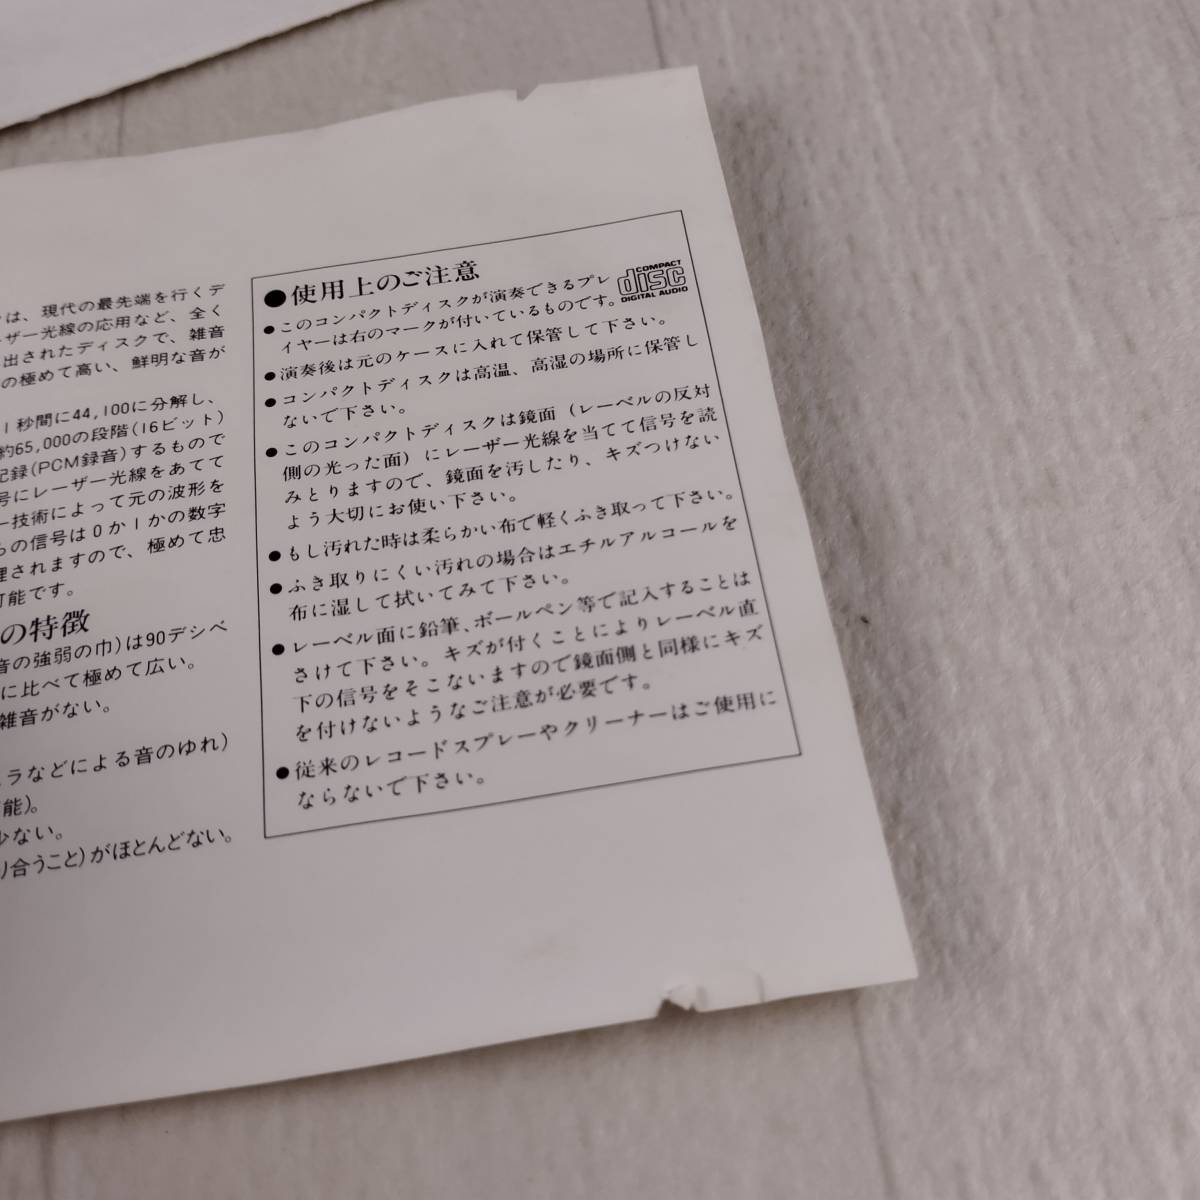 は、現代の最先端を行くデ
ザー光線の応用など、全く
出されたディスクで、雑音
の極めて高い、鮮明な音が
1秒間に44,100に分解し、
約65,000の段階(16ビット)
記録(PCM録音)するもので
号にレーザー光線をあてて
ー技術によって元の波形を
らの信号は0か1かの数字
理されますので、極めて忠
可能です。
の特徴
音の強弱の巾)は90デシベ
に比べて極めて広い。
雑音がない。
ムラなどによる音のゆれ)
能)。
少ない。
り合うこと)がほとんどない。
●使用上のご注意
COMPACT
disc
DIGITAL AUDIO
●このコンパクトディスクが演奏できるプレ
イヤーは右のマークが付いているものです。
●演奏後は元のケースに入れて保管して下さい。
●コンパクトディスクは高温、高湿の場所に保管し
ないで下さい。
●このコンパクトディスクは鏡面(レーベルの反対
側の光った面)にレーザー光線を当てて信号を読
みとりますので、鏡面を汚したり、キズつけない
よう大切にお使い下さい。
●もし汚れた時は柔らかい布で軽くふき取って下さい。
●ふき取りにくい汚れの場合はエチルアルコールを
布に湿して拭いてみて下さい。
●レーベル面に鉛筆、ボールペン等で記入することは
さけて下さい。キズが付くことによりレーベル直
下の信号をそこないますので鏡面側と同様にキズ
を付けないようなご注意が必要です。
●従来のレコードスプレーやクリーナーはご使用に
ならないで下さい。